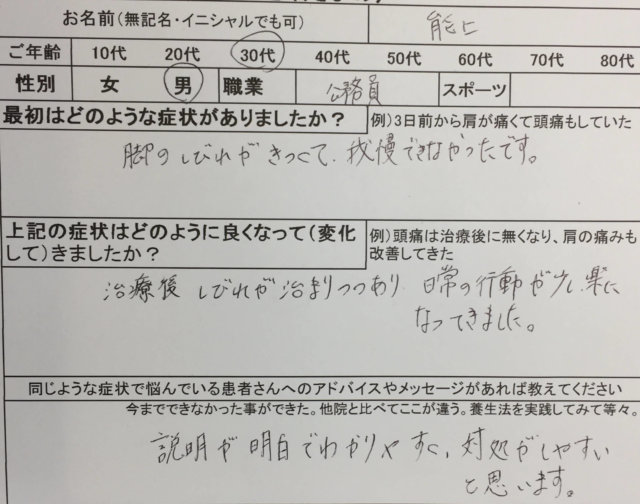 お名前(無記名・イニシャルでも可)
ご年齢 10代 20代 30代 40代 50代 60代 70代 80代
性別 女 男 職業 公務員 スポーツ
最初はどのような症状がありましたか? 例)3日前から肩が痛くて頭痛もしていた
脚のしびれがきつくて、我慢できなかったです。
上記の症状はどのように良くなって(変化
して)きましたか?
例)頭痛は治療後に無くなり、肩の痛みも
改善してきた
治療後しびれが治まりつつあり、日常の行動が少し楽に
なってきました。
同じような症状で悩んでいる患者さんへのアドバイスやメッセージがあれば教えてください
今までできなかった事ができた。他院と比べてここが違う。養生法を実践してみて等々。
説明が明白でわかりやすく、対処がしやすい
と思います。